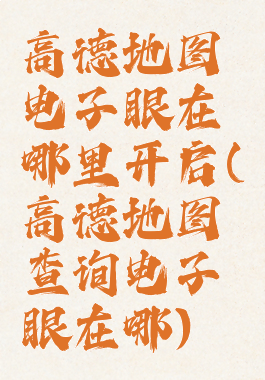 高德地图
电子眼在
哪里开启(
高德地图
查询电子
眼在哪)